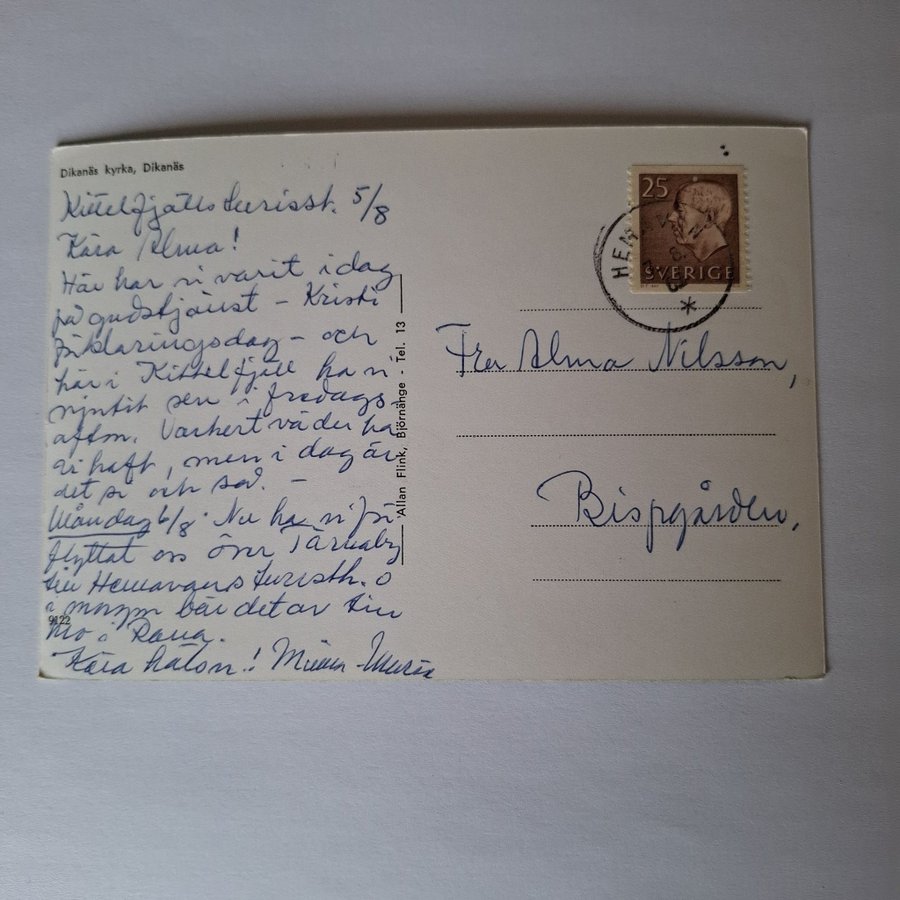 Dikanäs kyrka, Dikanäs
Kittelfjälls turisst. 5/8
Kära Alma!
Här har vi varit i dag
på gudstjänst - Kristi
förklaringsdag - och
här i Kittelfjäll ha vi
njutit sen i fredags
afton. Vackert väder ha
vi haft, men i dag är
det si och så. -
Måndag 6/8. Nu ha vi
flyttat oss över Tärnaby
till Hemavans turisth. o
i morgon bär det av till
Mo i Rana.
Kära häls'n!
9122
Allan Flink, Björnänge - Tel. 13
25
SVERIGE
HEM
Fru Alma Nilsson,
Bispgården,